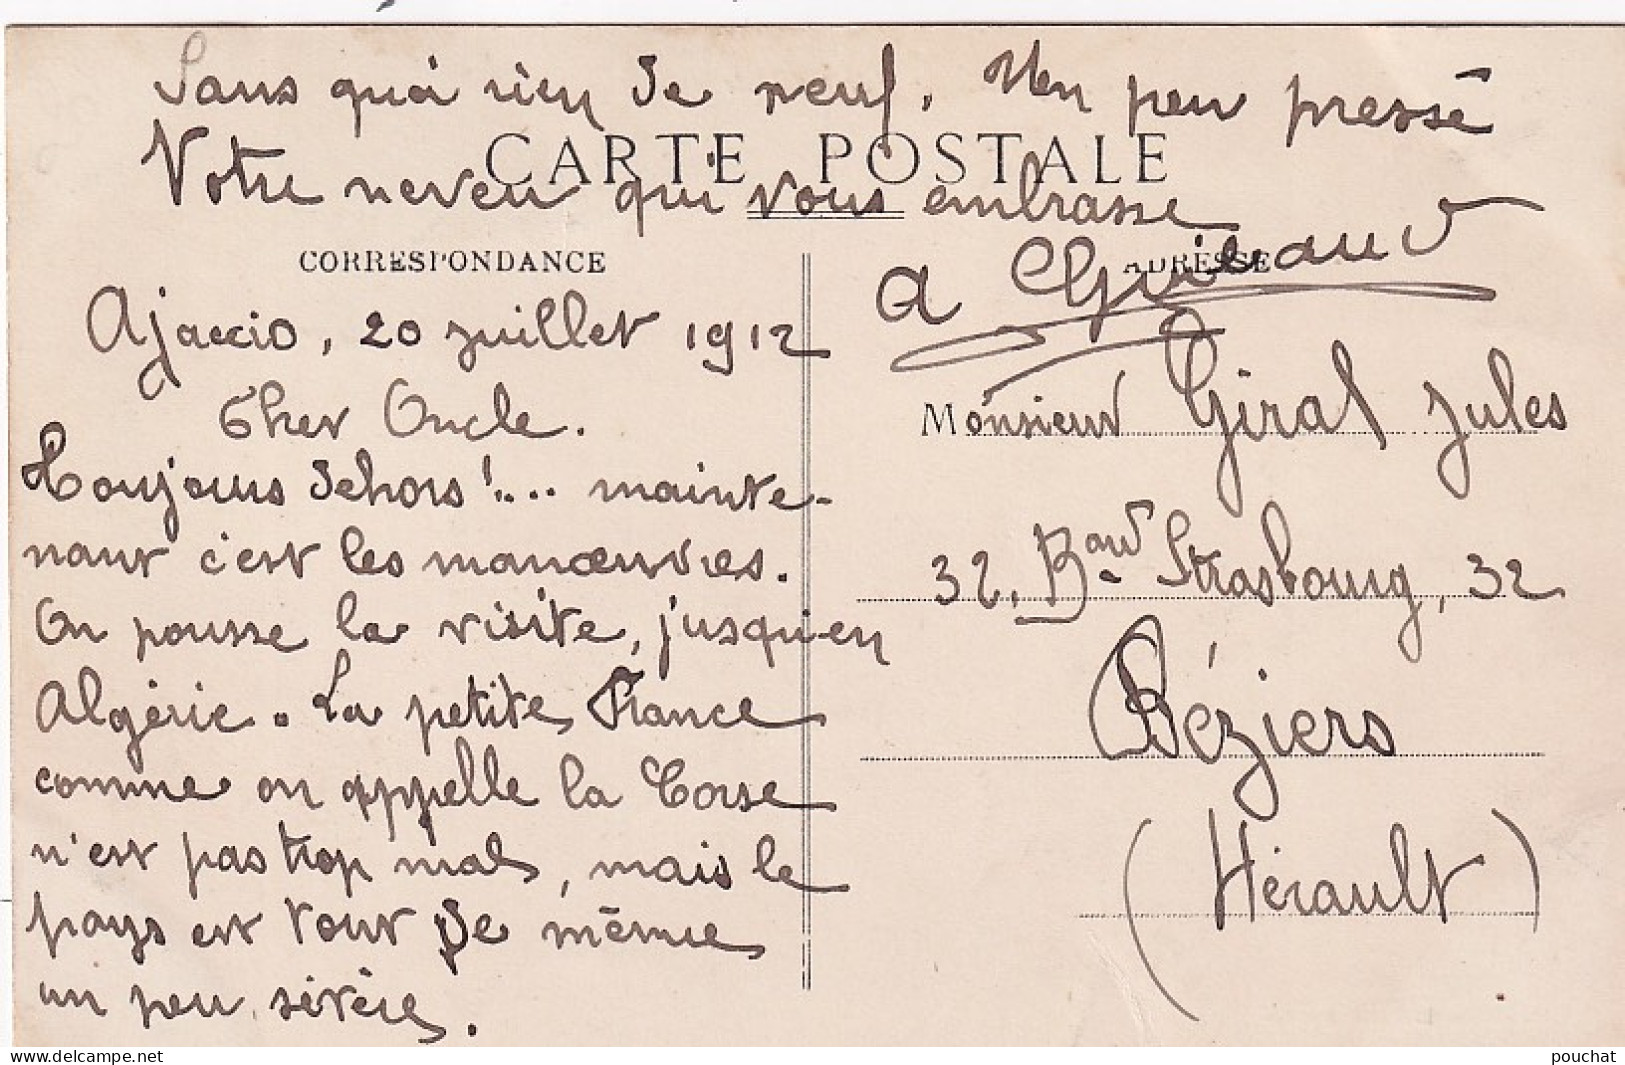 Sans quoi rien de neuf. Un peu pressé
CARTE POSTALE
Votre neveu qui vous embrasse
CORRESPONDANCE
Ajaccio, 20 juillet 1912
Cher Oncle.
Toujours dehors !... mainte-
nant c'est les manœuvres.
On pousse la visite, jusqu'en
Algérie. La petite France
comme on appelle la Corse
n'est pas trop mal, mais le
pays est tout de même
un peu sévère.
ADRESSE
A
Monsieur Giral Jules
32. Bard Strasbourg, 32
Béziers
(Hérault)
www.delcampe.net
pouchat